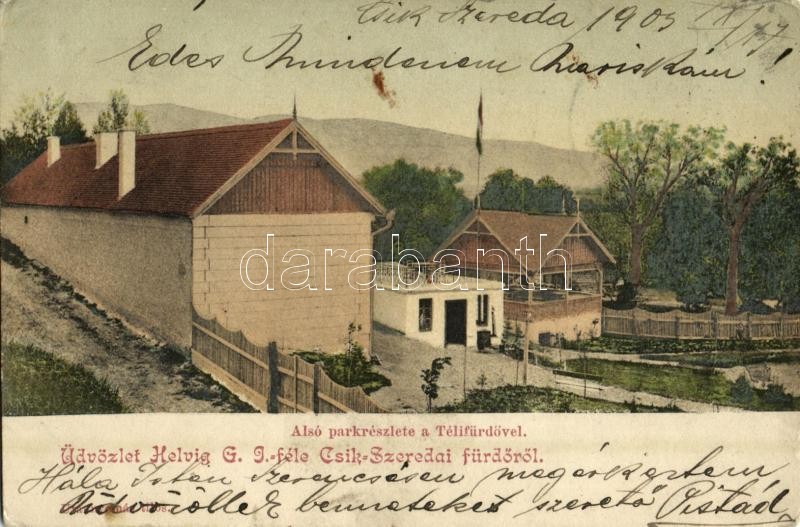 Csik Szereda 1903 IX/17
Édes Mindenem Mariskám!
darabanth
Alsó parkrészlete a Télifürdővel.
Üdvözlet Helvig G. J.-féle Csik-Szeredai fürdőről.
Hála Isten Szerencsésen megérkeztem,
Üdvözöllek benneteket szerető Pistád